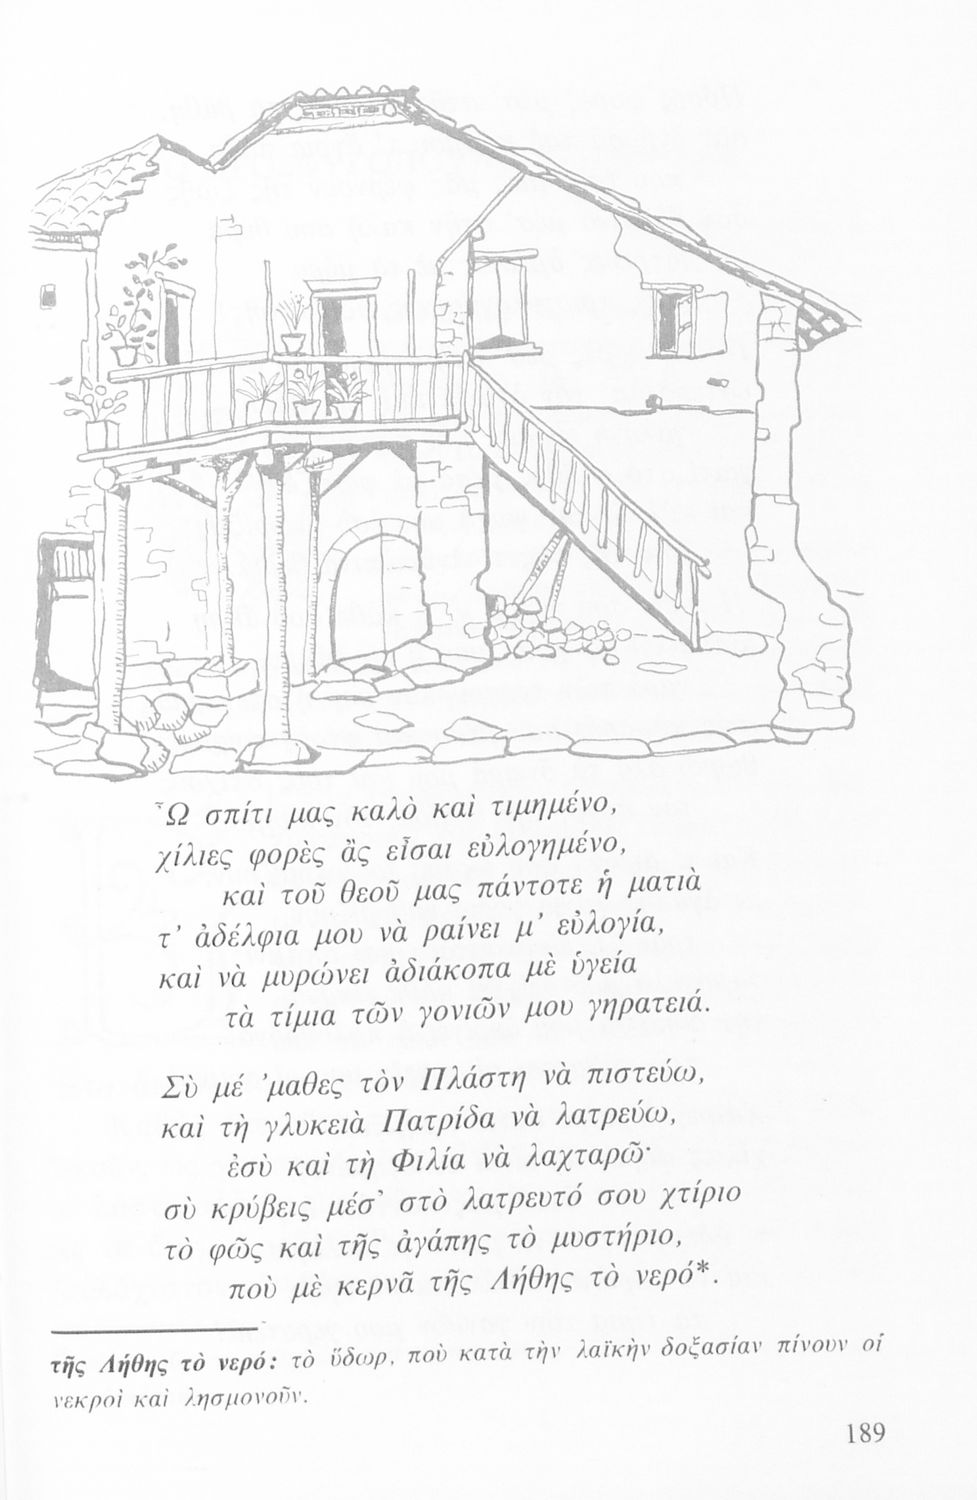 Ὦ σπίτι μας καλὸ καὶ τιμημένο,
χίλιες φορὲς ἂς εἶσαι εὐλογημένο,
καὶ τοῦ θεοῦ μας πάντοτε ἡ ματιὰ
τ’ ἀδέλφια μου νὰ ραίνει μ’ εὐλογία,
καὶ νὰ μυρώνει ἀδιάκοπα μὲ ὑγεία
τὰ τίμια τῶν γονιῶν μου γηρατειά.
Σὺ μέ ’μαθες τὸν Πλάστη νὰ πιστεύω,
καὶ τὴ γλυκειὰ Πατρίδα νὰ λατρεύω,
ἐσὺ καὶ τὴ Φιλία νὰ λαχταρῶ·
σὺ κρύβεις μέσ’ στὸ λατρευτό σου χτίριο
τὸ φῶς καὶ τῆς ἀγάπης τὸ μυστήριο,
ποὺ μὲ κερνᾶ τῆς Λήθης τὸ νερό*.
τῆς Λήθης τὸ νερό: τὸ ὕδωρ, ποὺ κατὰ τὴν λαϊκὴν δοξασίαν πίνουν οἱ
νεκροὶ καὶ λησμονοῦν.
189